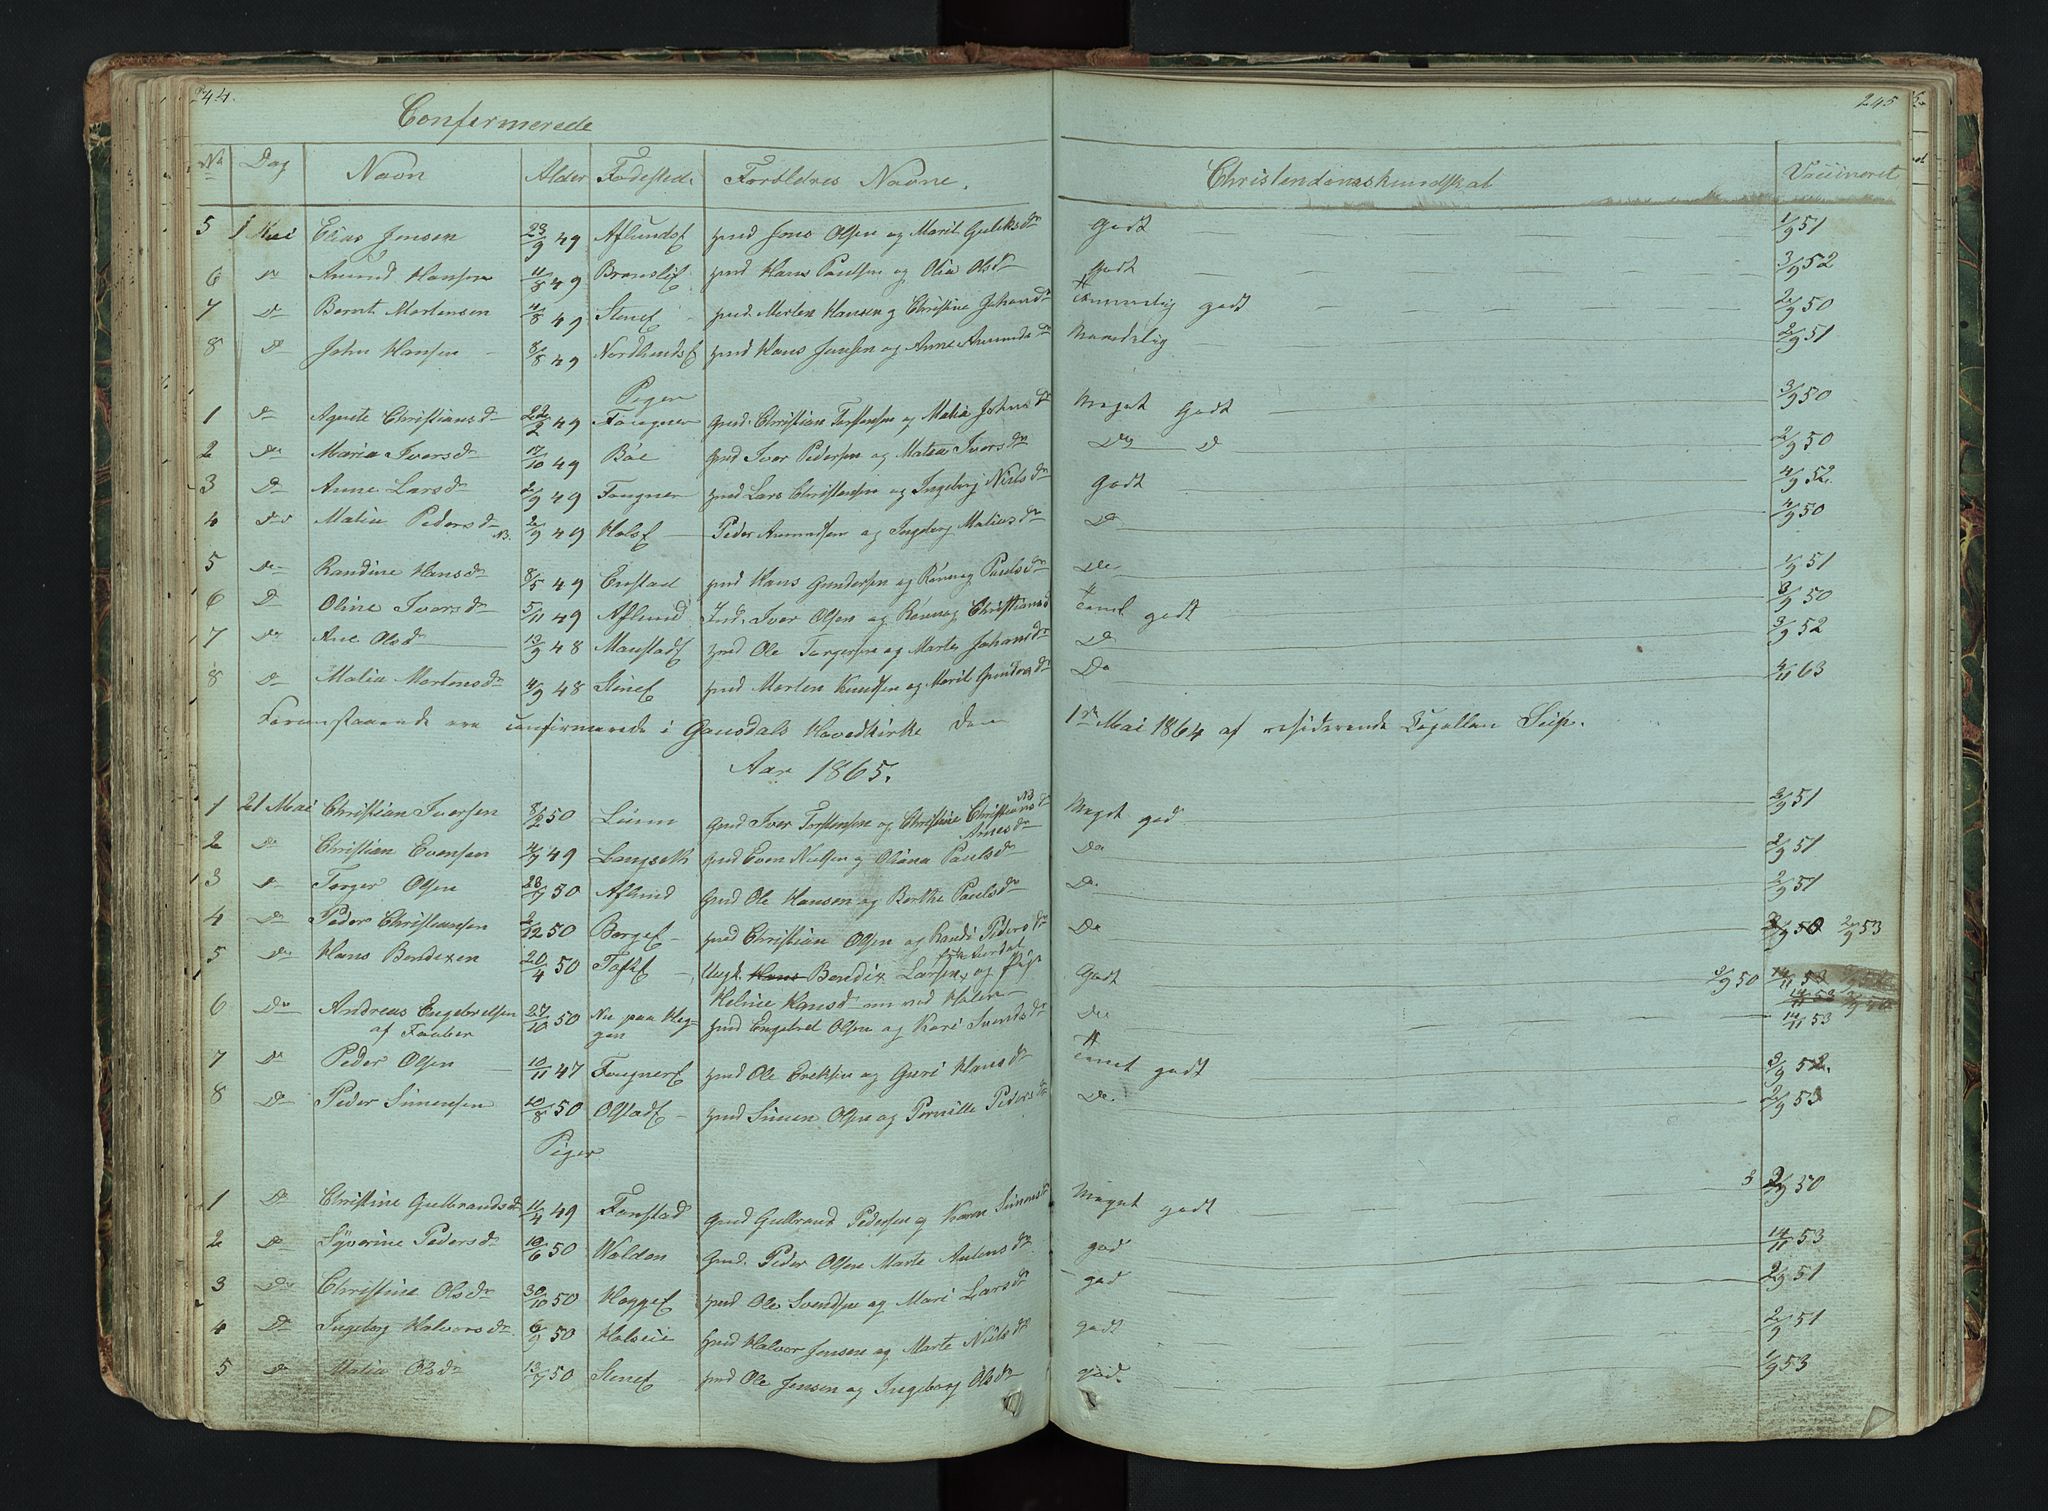 244. 245
Confirmerede
No Dag Navn Alder Fødested Forældres Navne. Christendomskundskab Vaccineret
5 1 Mai Elias Jensen 23/9 49 Aflundsf Jens Olsen og Marit Guliksdr Godt 1/9 51
6 Do Amund Hansen 11/8 49 Hans Paulsen og Olia Olsdr Godt 3/9 52
7 Do Bernt Mortensen 4/8 49 Stenef Morten Hansen og Christine Johansdr Temmelig godt 2/9 50
8 Do John Hansen 8/8 49 Nordlundsf Hans Jensen og Anne Amundsdr Maadelig 2/9 51
Piger
1 Do Agnete Christiansdr 22/2 49 Fougner Gmd. Christian Torstensen og Malia Johnsdr Meget Godt 3/9 50
2 Do Maria Iversdr 17/10 49 Bøe Gmd Iver Pedersen og Matea Iversdr Do Do 2/9 50
3 Do Anne Larsdr 2/9 49 Fougner Lars Christensen og Ingeborg Nielsdr Godt 4/9 52.
4 Do Malia Pedersdr NB. 2/9 49 Holsf Peder Amundsen og Ingeborg Matiasdr Do 4/9 50
5 Do Randine Hansdr 8/5 49 Enstad Hans Gundersen og Rønnog Paulsdr Do 1/9 51
6 Do Oline Iversdr 5/11 49 Aflund Ind. Iver Olsen og Rønnog Christiansd Teml godt 3/9 50
7 Do Ane Olsdr 13/9 48 Maustadf Ole Torgersen og Marte Johansdr Do 3/9 52
8 Do Malia Mortensdr 4/9 48 Stenef Morten Knudsen og Marit Gundersdr Do 4/11 63
Foranstaaende ere confirmerede i Gausdals Hovedkirke den 1ste Mai 1864 af residerende Capellan Seip.
Aar 1865.
1 21 Mai Christian Iversen 8/2 50 Linn Gmd Iver Torstensen og Christine Christiansdr NB Meget god 2/9 51
Arnesdr
2 Do Christian Evensen 4/9 49 Langseth Even Nielsen og Oliana Paulsdr Do 2/9 51
3 Do Torger Olsen 28/7 50 Aflund Gmd Ole Hansen og Berthe Paulsdr Do. 2/9 51
4 Do Peder Christiansen 2/12 50 Bergef Christian Olsen og Randi Pedersdr Do 3/9 50 2/9 53
5 Do Hans Bendixen 20/4 50 Toftef Ungk. Hans Bendix Larsen, og Pige Godt 3/9 50 14/11 53
Heline Hansd
6 Do Andreas Engebretsen 27/10 50 Nu paa Heg- Engebret Olsen og Kari Svendsdr Do 14/11 53
af Faaber gen
7 Do Peder Olsen 10/11 47 Fougnerf Ole Ereksen og Guri Hansdr Temt godt 3/9 52.
8 Do Peder Simensen 10/8 50 Olstadf Simen Olsen og Pernille Pedersdr Do. 2/9 53
Piger
1 Do Christine Gulbrandsdr 11/4 49 Forstad Gmd Gulbrand Pedersen og Karen Simensdr Meget godt 2/9 50
2 Do Syverine Pedersdr 10/6 50 Volden Gmd. Peder Olsen Marte Antensdr god 14/11 53
3 Do Christine Olsdr 30/10 50 Heggef Ole Svendsen og Mari Larsdr god 2/9 51
4 Do Ingeborg Halvorsdr 6/9 50 Halvor Jensen og Marte Nielsdr godt 2/9 51
5 Do Malia Olsdr 13/7 50 Stenef Ole Jensen og Ingeborg Olsdr god. 1/9 53